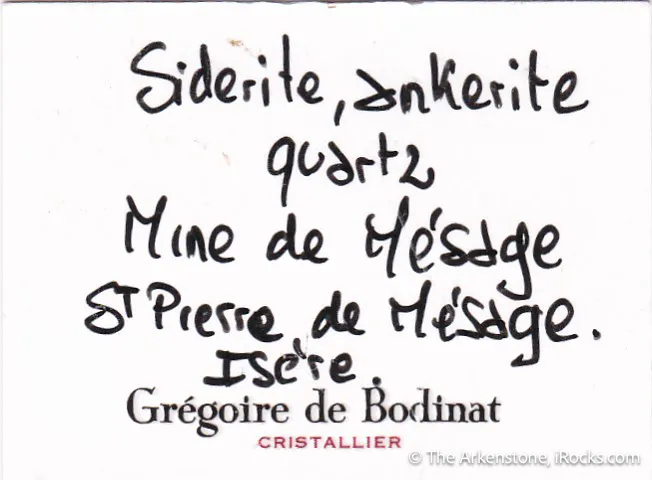 Siderite, ankerite
quartz
Mine de Mésage
St Pierre de Mésage.
Isère.
Grégoire de Bodinat
CRISTALLIER
© The Arkenstone, iRocks.com